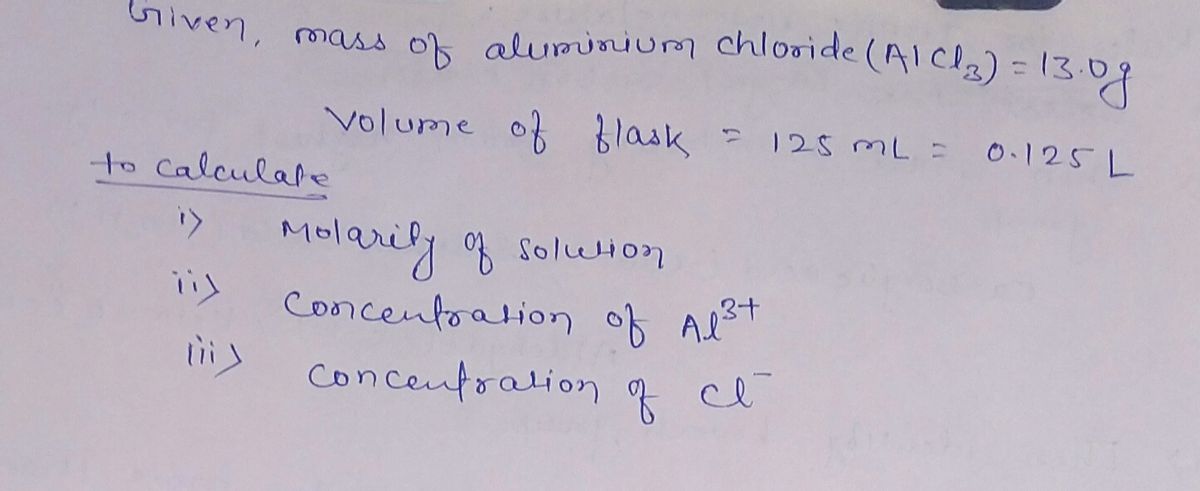 Given, mass of aluminium chloride (AlCl₃) = 13.0g
Volume of flask = 125 mL = 0.125 L
to calculate
i) Molarity of solution
ii) Concentration of Al³⁺
iii) concentration of Cl⁻